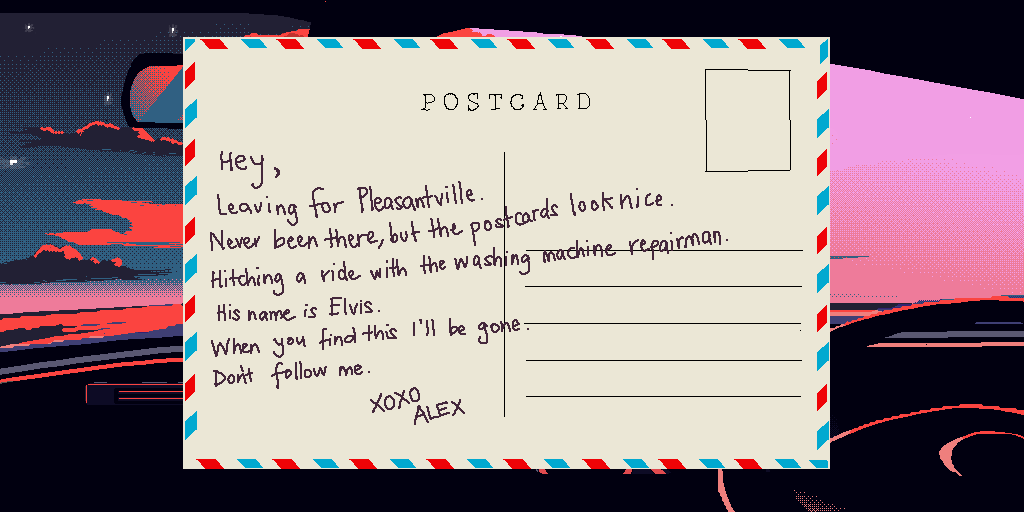 POSTCARD
Hey,
Leaving for Pleasantville.
Never been there, but the postcards look nice.
Hitching a ride with the washing machine repairman.
His name is Elvis.
When you find this I'll be gone.
Don't follow me.
XOXO
ALEX